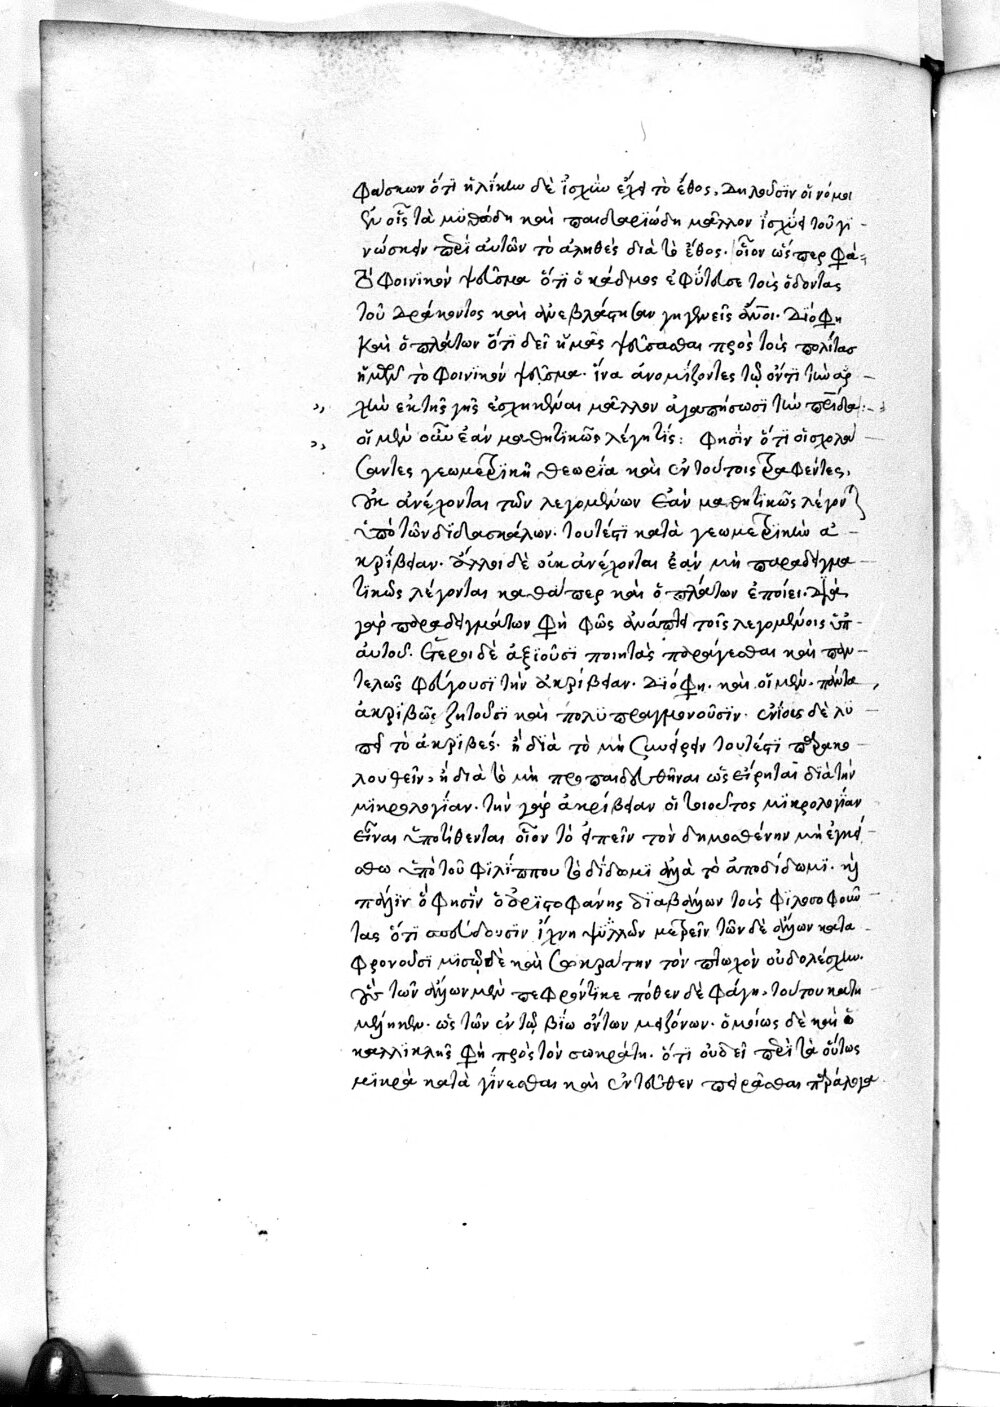 φάσκων ὅτι ἡλίκην δὲ ἰσχὺν ἔχει τὸ ἔθος, δηλοῦσιν οἱ νόμοι
ἐν οἷς τὰ μυθώδη καὶ παιδαριώδη μᾶλλον ἰσχύει τοῦ γι
νώσκειν περὶ αὐτῶν τὸ ἀληθὲς διὰ τὸ ἔθος. οἷον ὥσπερ φα
Φοινικὸν ψεῦσμα ὅτι ὁ κάδμος ἐφύτευσε τοὺς ὀδόντας
τοῦ δράκοντος καὶ ἀνεβλάστησαν γηγενεῖς ἄνοι. διό φη
καὶ ὁ πλάτων ὅτι δεῖ ἡμᾶς ψεύσασθαι πρὸς τοὺς πολίτας
τὸ Φοινικὸν ψεῦσμα. ἵνα νομίζοντες τῷ ὄντι τὴν ἀρ
χὴν ἐκ τῆς γῆς ἐσχηκέναι μᾶλλον ἀγαπήσωσι τὴν πρίδα:
οἱ μὲν οὖν ἐὰν μαθητικῶς λέγῃ τις: φησὶν ὅτι οἱ σχολά
σαντες γεωμετρικῇ θεωρίᾳ καὶ ἐν τούτοις τραφέντες,
οὐκ ἀνέχονται τῶν λεγομένων ἐὰν μαθητικῶς λέγον
ὑπὸ τῶν διδασκάλων. τουτέστι κατὰ γεωμετρικὴν ἀ
κρίβειαν. ἄλλοι δὲ οὐκ ἀνέχονται ἐὰν μὴ παραδειγμα
τικῶς λέγονται καθάπερ καὶ ὁ πλάτων ἐποίει. διὰ
γὰρ παραδειγμάτων φὴ φῶς ἀνάπτει τοῖς λεγομένοις ὑπ
αὐτοῦ. ἕτεροι δὲ ἀξιοῦσι ποιητὰς παράγεσθαι καὶ παν
τελῶς φεύγουσι τὴν ἀκρίβειαν. διό φη. καὶ οἱ μὲν. πάντα
ἀκριβῶς ζητοῦσι καὶ πολυπραγμονοῦσιν. ἐνίοις δὲ λυ
πεῖ τὸ ἀκριβές. ἢ διὰ τὸ μὴ συνείρειν τουτέστι παρακο
λουθεῖν, ἢ διὰ τὸ μὴ προπαιδευθῆναι ὡς εἴρηται διὰ τὴν
μικρολογίαν. τὴν γὰρ ἀκρίβειαν οἱ τοιοῦτος μικρολογίαν
εἶναι ὑποτίθενται οἷον τὸ εἰπεῖν τὸν δημοσθένην μὴ
σθω ὑπὸ τοῦ Φιλίππου τὸ δίδωμι ἀλλὰ τὸ ἀποδίδωμι. καὶ
πάλιν ὅ φησὶν ὁ ἀριστοφάνης διαβάλλων τοὺς φιλοσοφοῦν
τας ὅτι σπεύδουσιν ἴχνη ψυλλῶν μετρεῖν τῶν δὲ ἄλλων κατα
φρονοῦσι μισῶ δὲ καὶ σωκράτην τὸν πτωχὸν ἀδολέσχην.
ὃς τῶν ἄλλων μὲν πεφρόντικε πόθεν δὲ φάγῃ, τούτου κατη
μέληκεν. ὡς τῶν ἐν τῷ βίῳ ὄντων μειζόνων. ὁμοίως δὲ καὶ ὁ
καλλικλῆς φὴ πρὸς τὸν σωκράτη. ὅτι οὐ δεῖ περὶ τὰ οὕτως
μικρὰ κατὰ γίνεσθαι καὶ ἐντεῦθεν πειρᾶσθαι